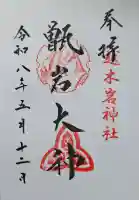 奉拝
速木宮神社
甑岩大神
令和八年五月十二日